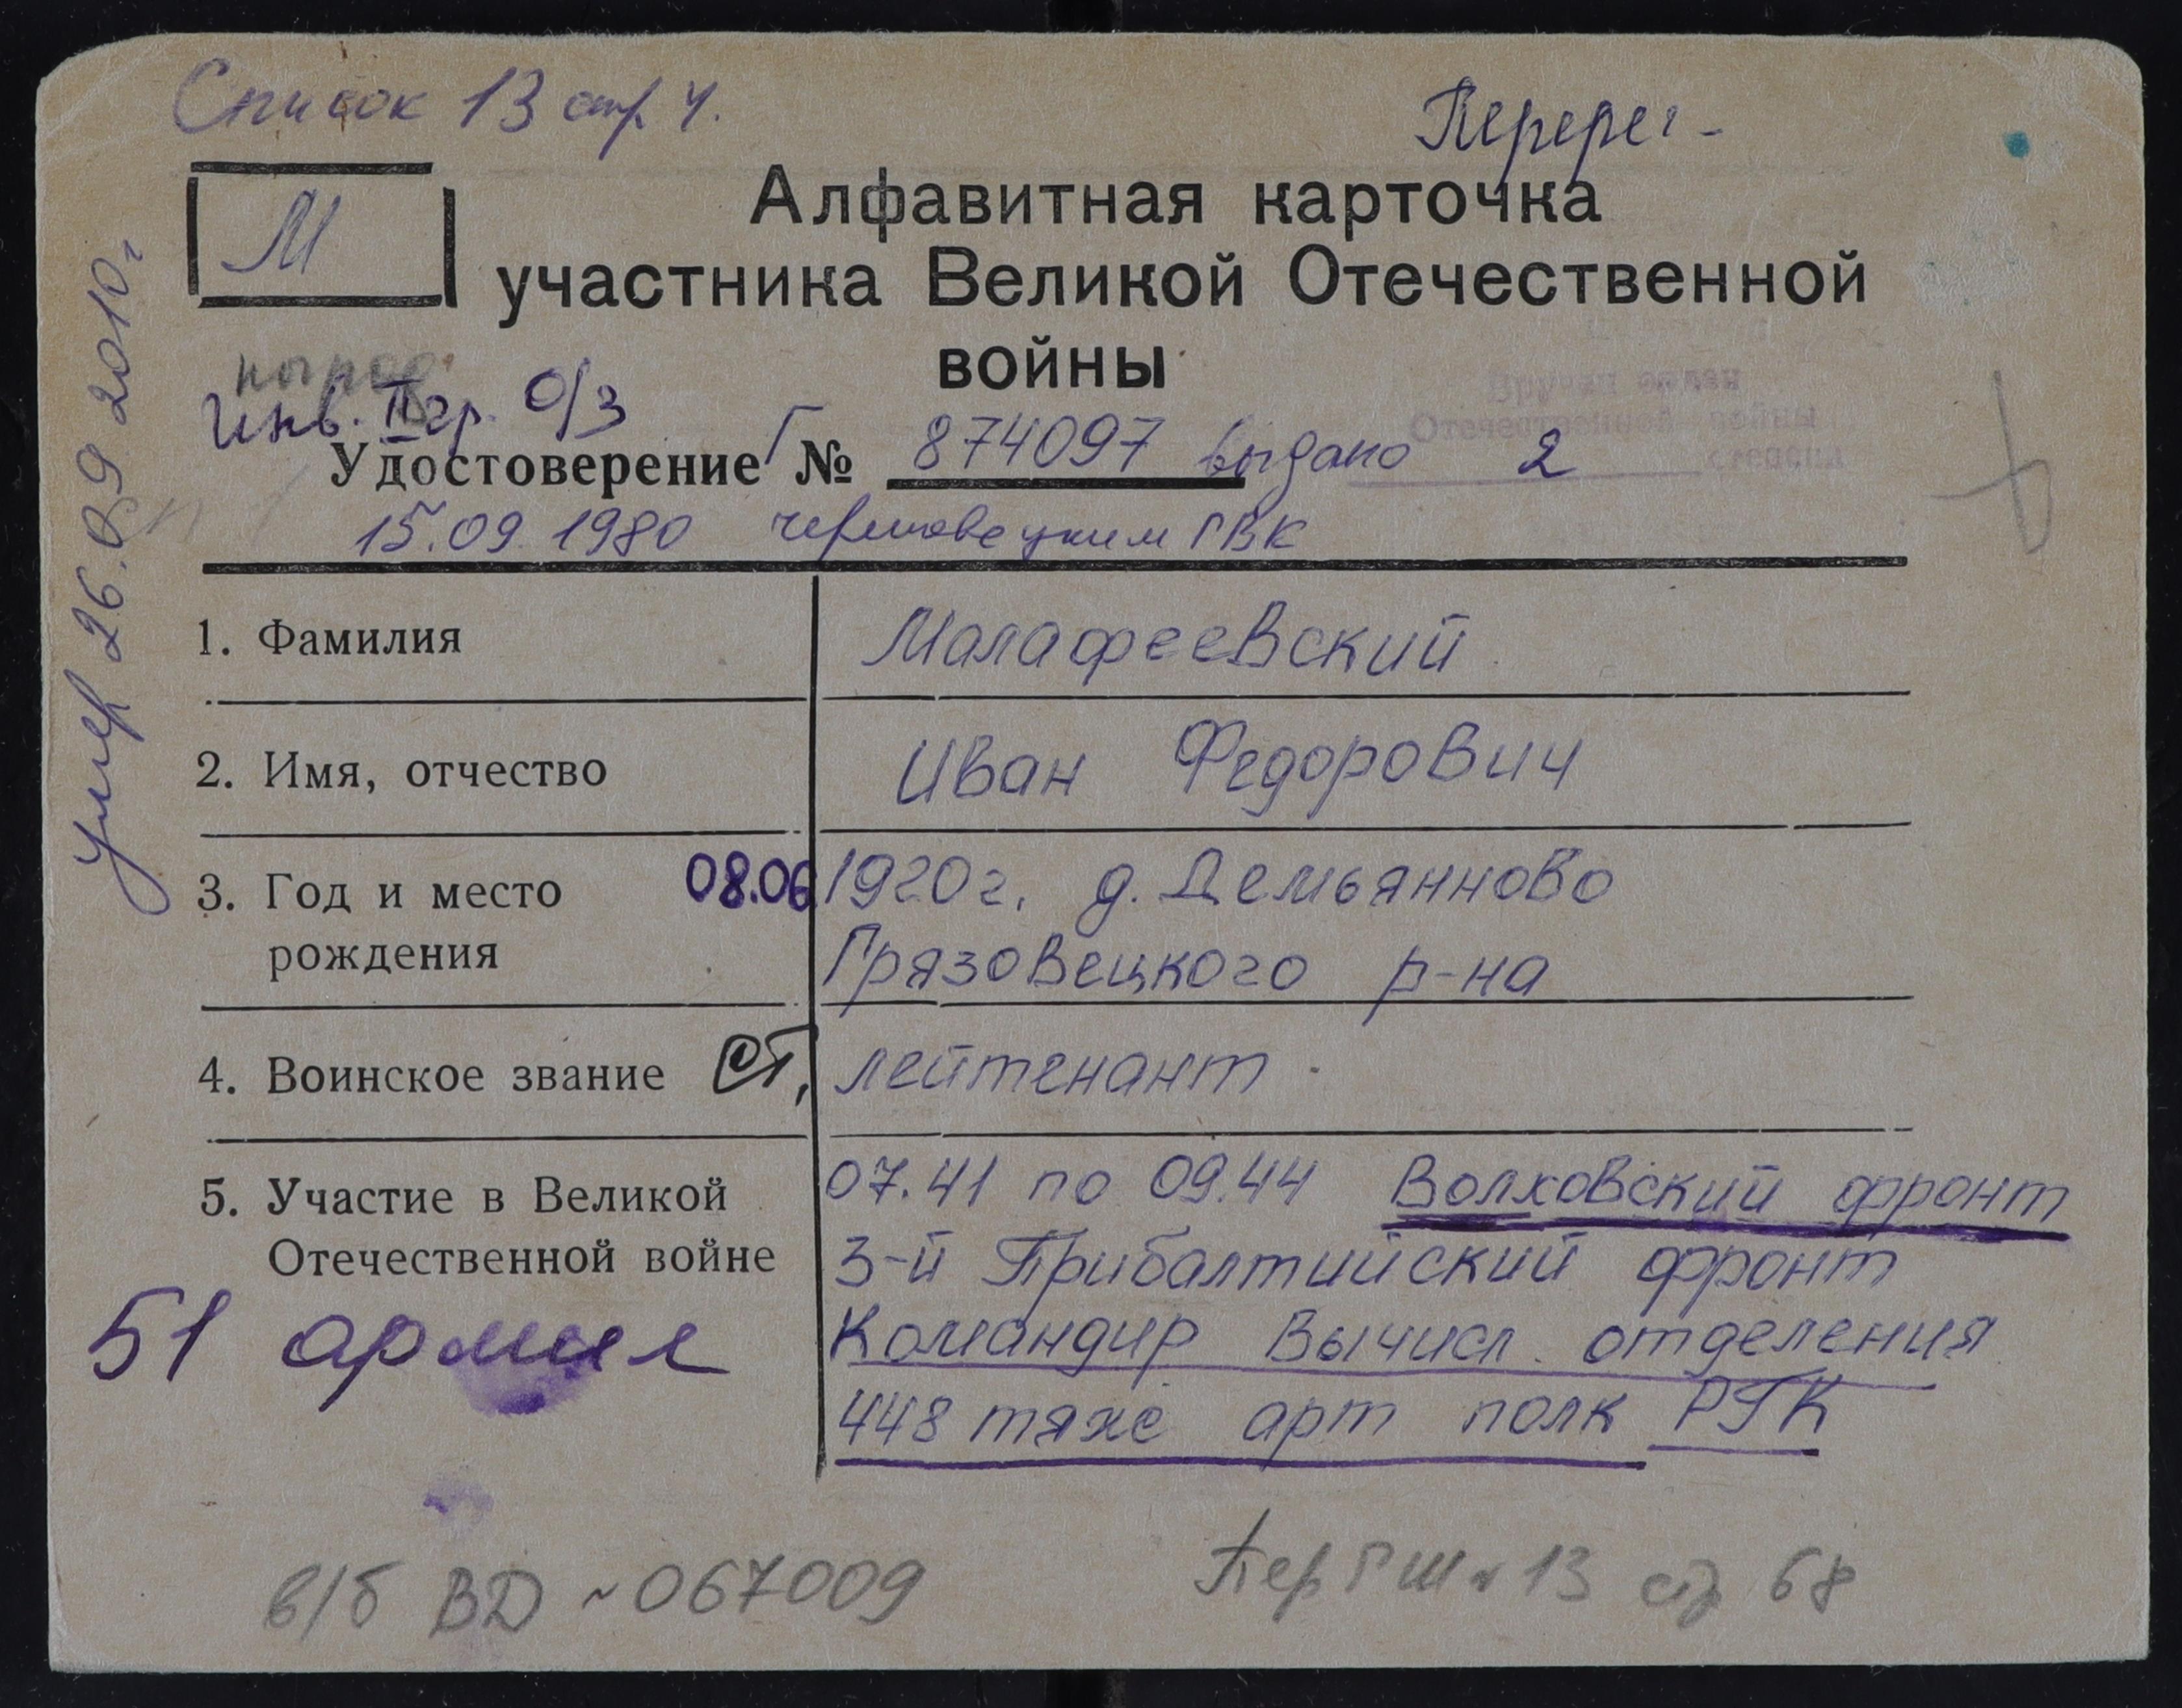 Список 13 стр 4.
Перерег-
М
Алфавитная карточка
участника Великой Отечественной
войны
Инв. II гр. О/З
Вручен орден
Отечественной войны
2 степени
Удостоверение Г № 874097 выдано
15.09.1980 череповецким ГВК
умер 26.09.2010г
1. Фамилия Малафеевский
2. Имя, отчество Иван Федорович
3. Год и место 08.06 1920г. д. Демьянново
рождения Грязовецкого р-на
4. Воинское звание ст, лейтенант
5. Участие в Великой 07.41 по 09.44 Волховский фронт
Отечественной войне 3-й Прибалтийский фронт
51 армия Командир Вычисл. отделения
448 тяж арт полк РГК
в/б ВД ~067009
Пер 13 стр 68